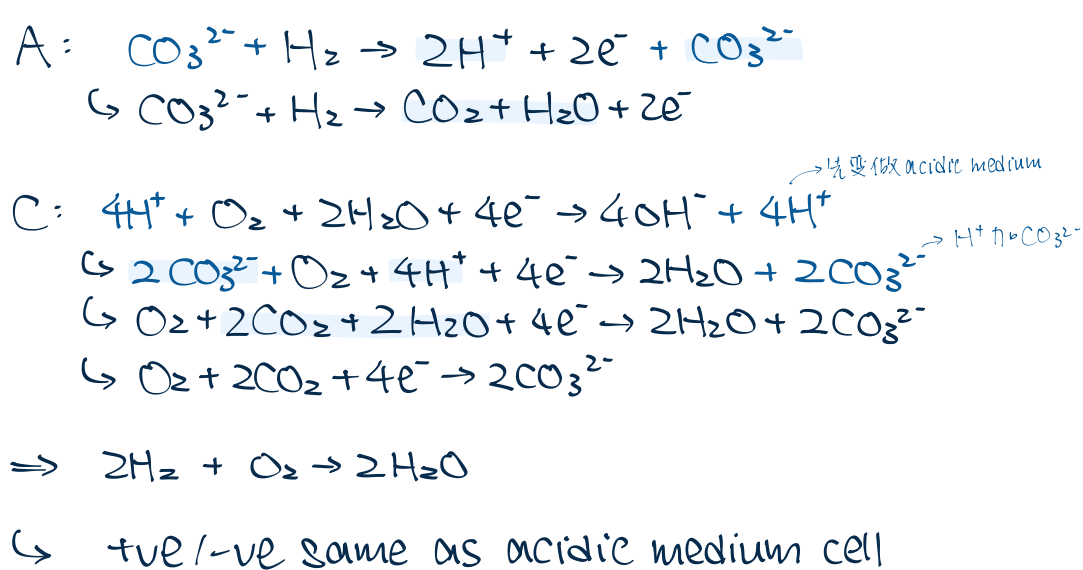 A: CO₃²⁻ + H₂ → 2H⁺ + 2e⁻ + CO₃²⁻
↳ CO₃²⁻ + H₂ → CO₂ + H₂O + 2e⁻
→ 先變做 acidic medium
C: 4H⁺ + O₂ + 2H₂O + 4e⁻ → 4OH⁻ + 4H⁺
→ H⁺ 加 CO₃²⁻
↳ 2CO₃²⁻ + O₂ + 4H⁺ + 4e⁻ → 2H₂O + 2CO₃²⁻
↳ O₂ + 2CO₂ + 2H₂O + 4e⁻ → 2H₂O + 2CO₃²⁻
↳ O₂ + 2CO₂ + 4e⁻ → 2CO₃²⁻
⇒ 2H₂ + O₂ → 2H₂O
↳ +ve/-ve same as acidic medium cell